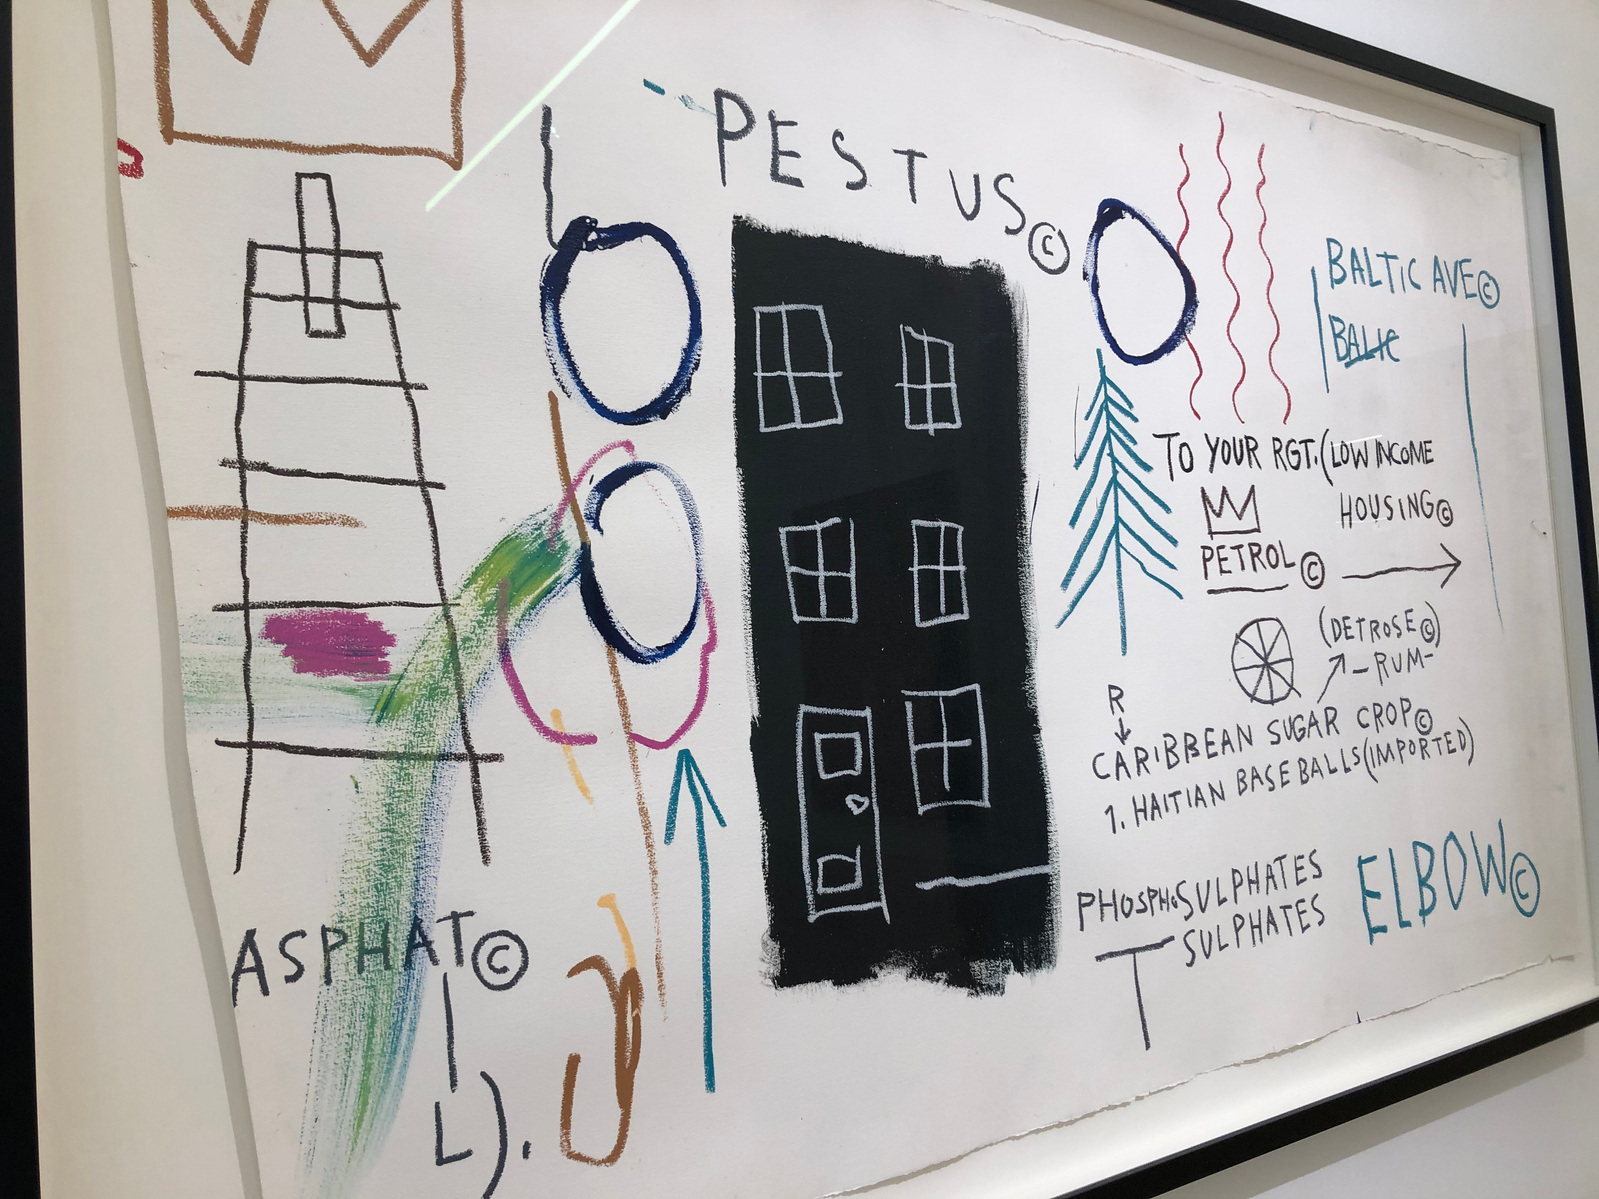 PESTUS©
BALTIC AVE©
BALIC
TO YOUR RGT. (LOW INCOME
HOUSING©
PETROL©
(DETROSE©)
-RUM-
R
CARIBBEAN SUGAR CROP©
1. HAITIAN BASEBALLS (IMPORTED)
PHOSPHOSULPHATES
SULPHATES
T
ELBOW©
ASPHAT©
L).